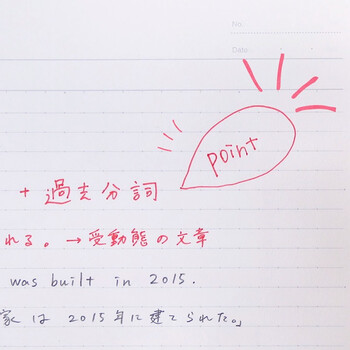 No.
Date
point
+ 過去分詞
れる。→受動態の文章
was built in 2015.
家は 2015年に建てられた。」